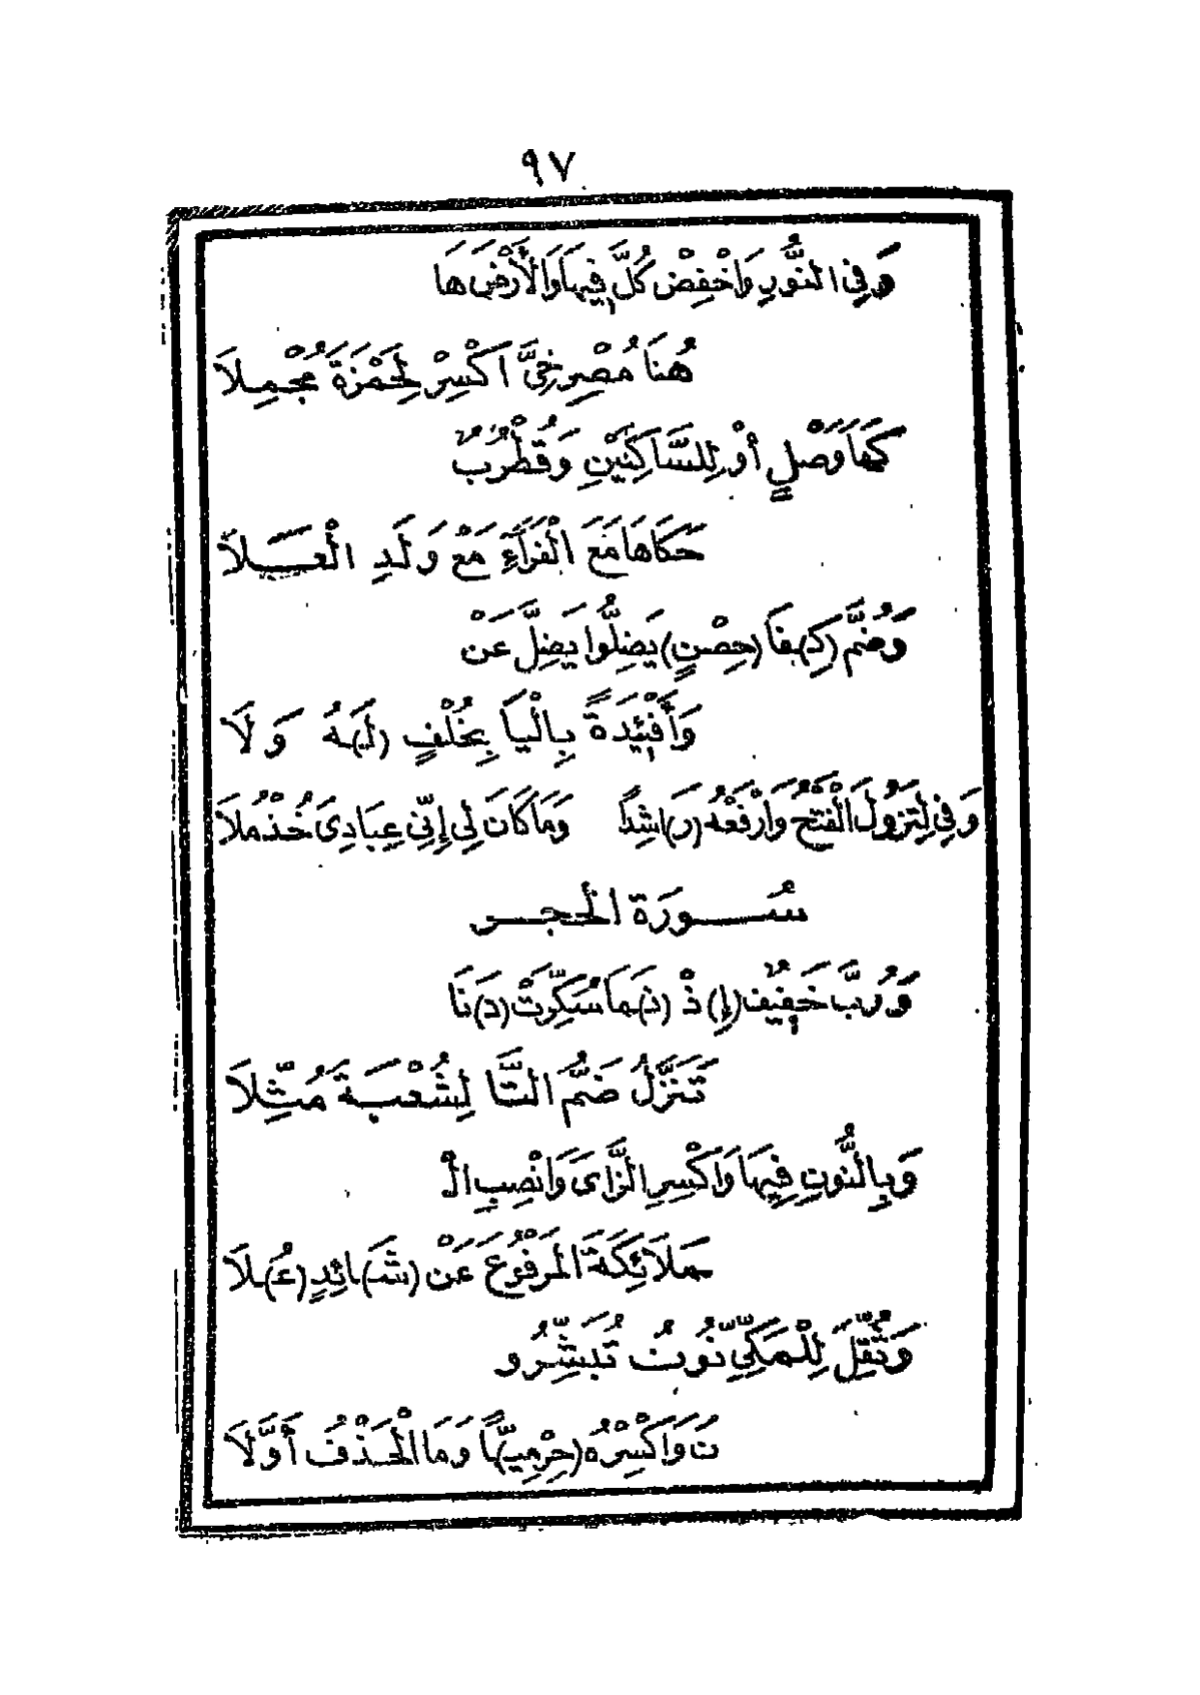 ٩٧
وَفِى النُّورِ وَاخْفِضْ كُلَّ فِيهَا وَالْأَرْضَ هَا
هُنَا مُصْرِخِيَّ اكْسِرْ لِحَمْزَةَ مُجْمِلَا
كَهَا وَصْلٍ أَوْ لِلسَّاكِنَيْنِ وَقُطْرُبٌ
حَكَاهَا مَعَ الْفَرَّاءِ مَعْ وَلَدِ الْعَلَا
وَضُمَّ (كِـ)ـفَا (حِصْنٍ) يَضِلُّوا يَضِلَّ عَنْ
وَأَفْئِيدَةً بِالْيَا بِخُلْفٍ (لَـ)ـهُ وَلَا
وَفِى لِتَزُولَ الْفَتْحُ وَارْفَعْهُ (رَ)اشِدًا وَمَا كَانَ لِى إِنِّى عِبَادِىَ خُذْ مُلَا
سُورَة الْحجر
وَرُبَّ خَفِيفٌ (إِ)ذْ (نَـ)ـمَا سُكِّرَتْ (دَ)نَا
تَنَزَّلُ ضَمُّ التَّا لِشُعْبَةَ مُثِّلَا
وَبِالنُّونِ فِيهَا وَاكْسِرِ الزَّاىَ وَانْصِبِ الْ
ـمَلَائِكَةَ الْمَرْفُوعَ عَنْ (شَـ)ـائِدٍ (عُـ)ـلَا
وَثُقِّلَ لِلْمَكِّىِّ نُونُ تُبَشِّرُو
نَ وَاكْسِرْهُ (حِرْمِيًّـ)ـا وَمَا الْحَذْفُ أَوَّلَا